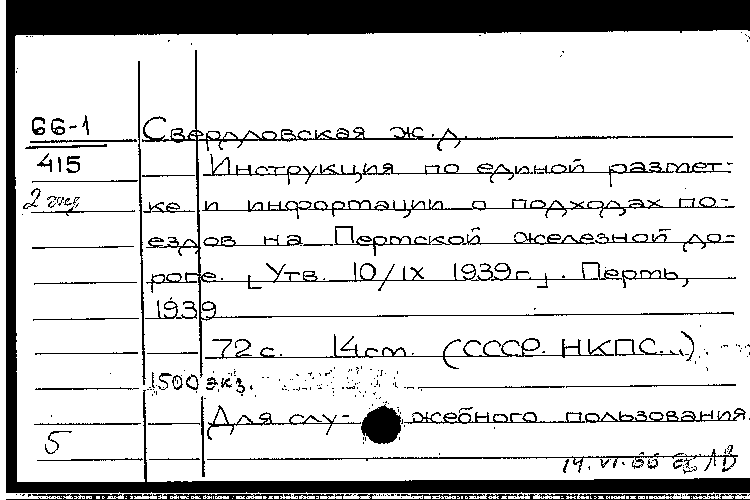 66-1 Свердловская ж.д.
415 Инструкция по единой размет-
2 экз ке и информации о подходах по-
ездов на Пермской железной до-
роге. [Утв. 10/IX 1939г.]. Пермь,
1939
72 с. 14 см. (СССР. НКПС...).
1500 экз.
Для слу- жебного пользования.
5
14.VI.66 ЛВ